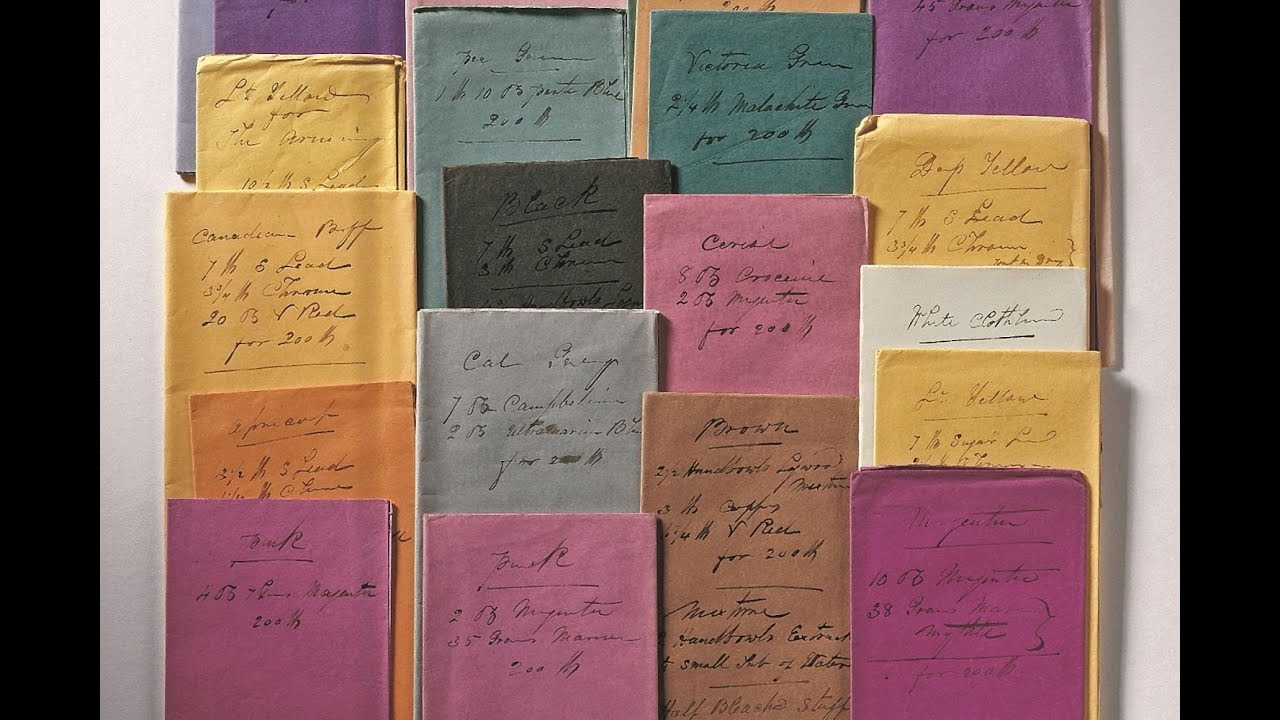 200 lb
45 Grans Magenta
for 200 lb
Lt. Yellow
for
The
10 1/2 lb S Lead
Pea Green
1 lb 10 oz paste Blue
200 lb
Victoria Green
2 1/4 lb Malachite Green
for 200 lb
Deep Yellow
7 lb S Lead
3 3/4 lb Chrome
Canadian Buff
7 lb S Lead
3 3/4 lb Chrome
20 oz V Red
for 200 lb
Black
7 lb S Lead
3 lb Chrome
Handbowls
Cerise
8 oz Croceine
2 oz Magenta
for 200 lb
White Clothlined
Cal Grey
7 oz
2 oz Ultramarine Blue
for 200 lb
Lt. Yellow
7 lb Sugar Lead
Chrome
Apricot
3 1/2 lb S Lead
lb Chrome
Brown
2 1/2 Handbowls Logwood
Mixture
3 lb Copps
1 1/4 lb V Red
for 200 lb
Mixture
Handbowls Extract
small Tub of Water
Half Bleachd Stuff
Pink
4 oz 7 Grans Magenta
200 lb
Pink
2 oz Magenta
35 Grans
200 lb
Magenta
10 oz Magenta
38 Grans
for 200 lb